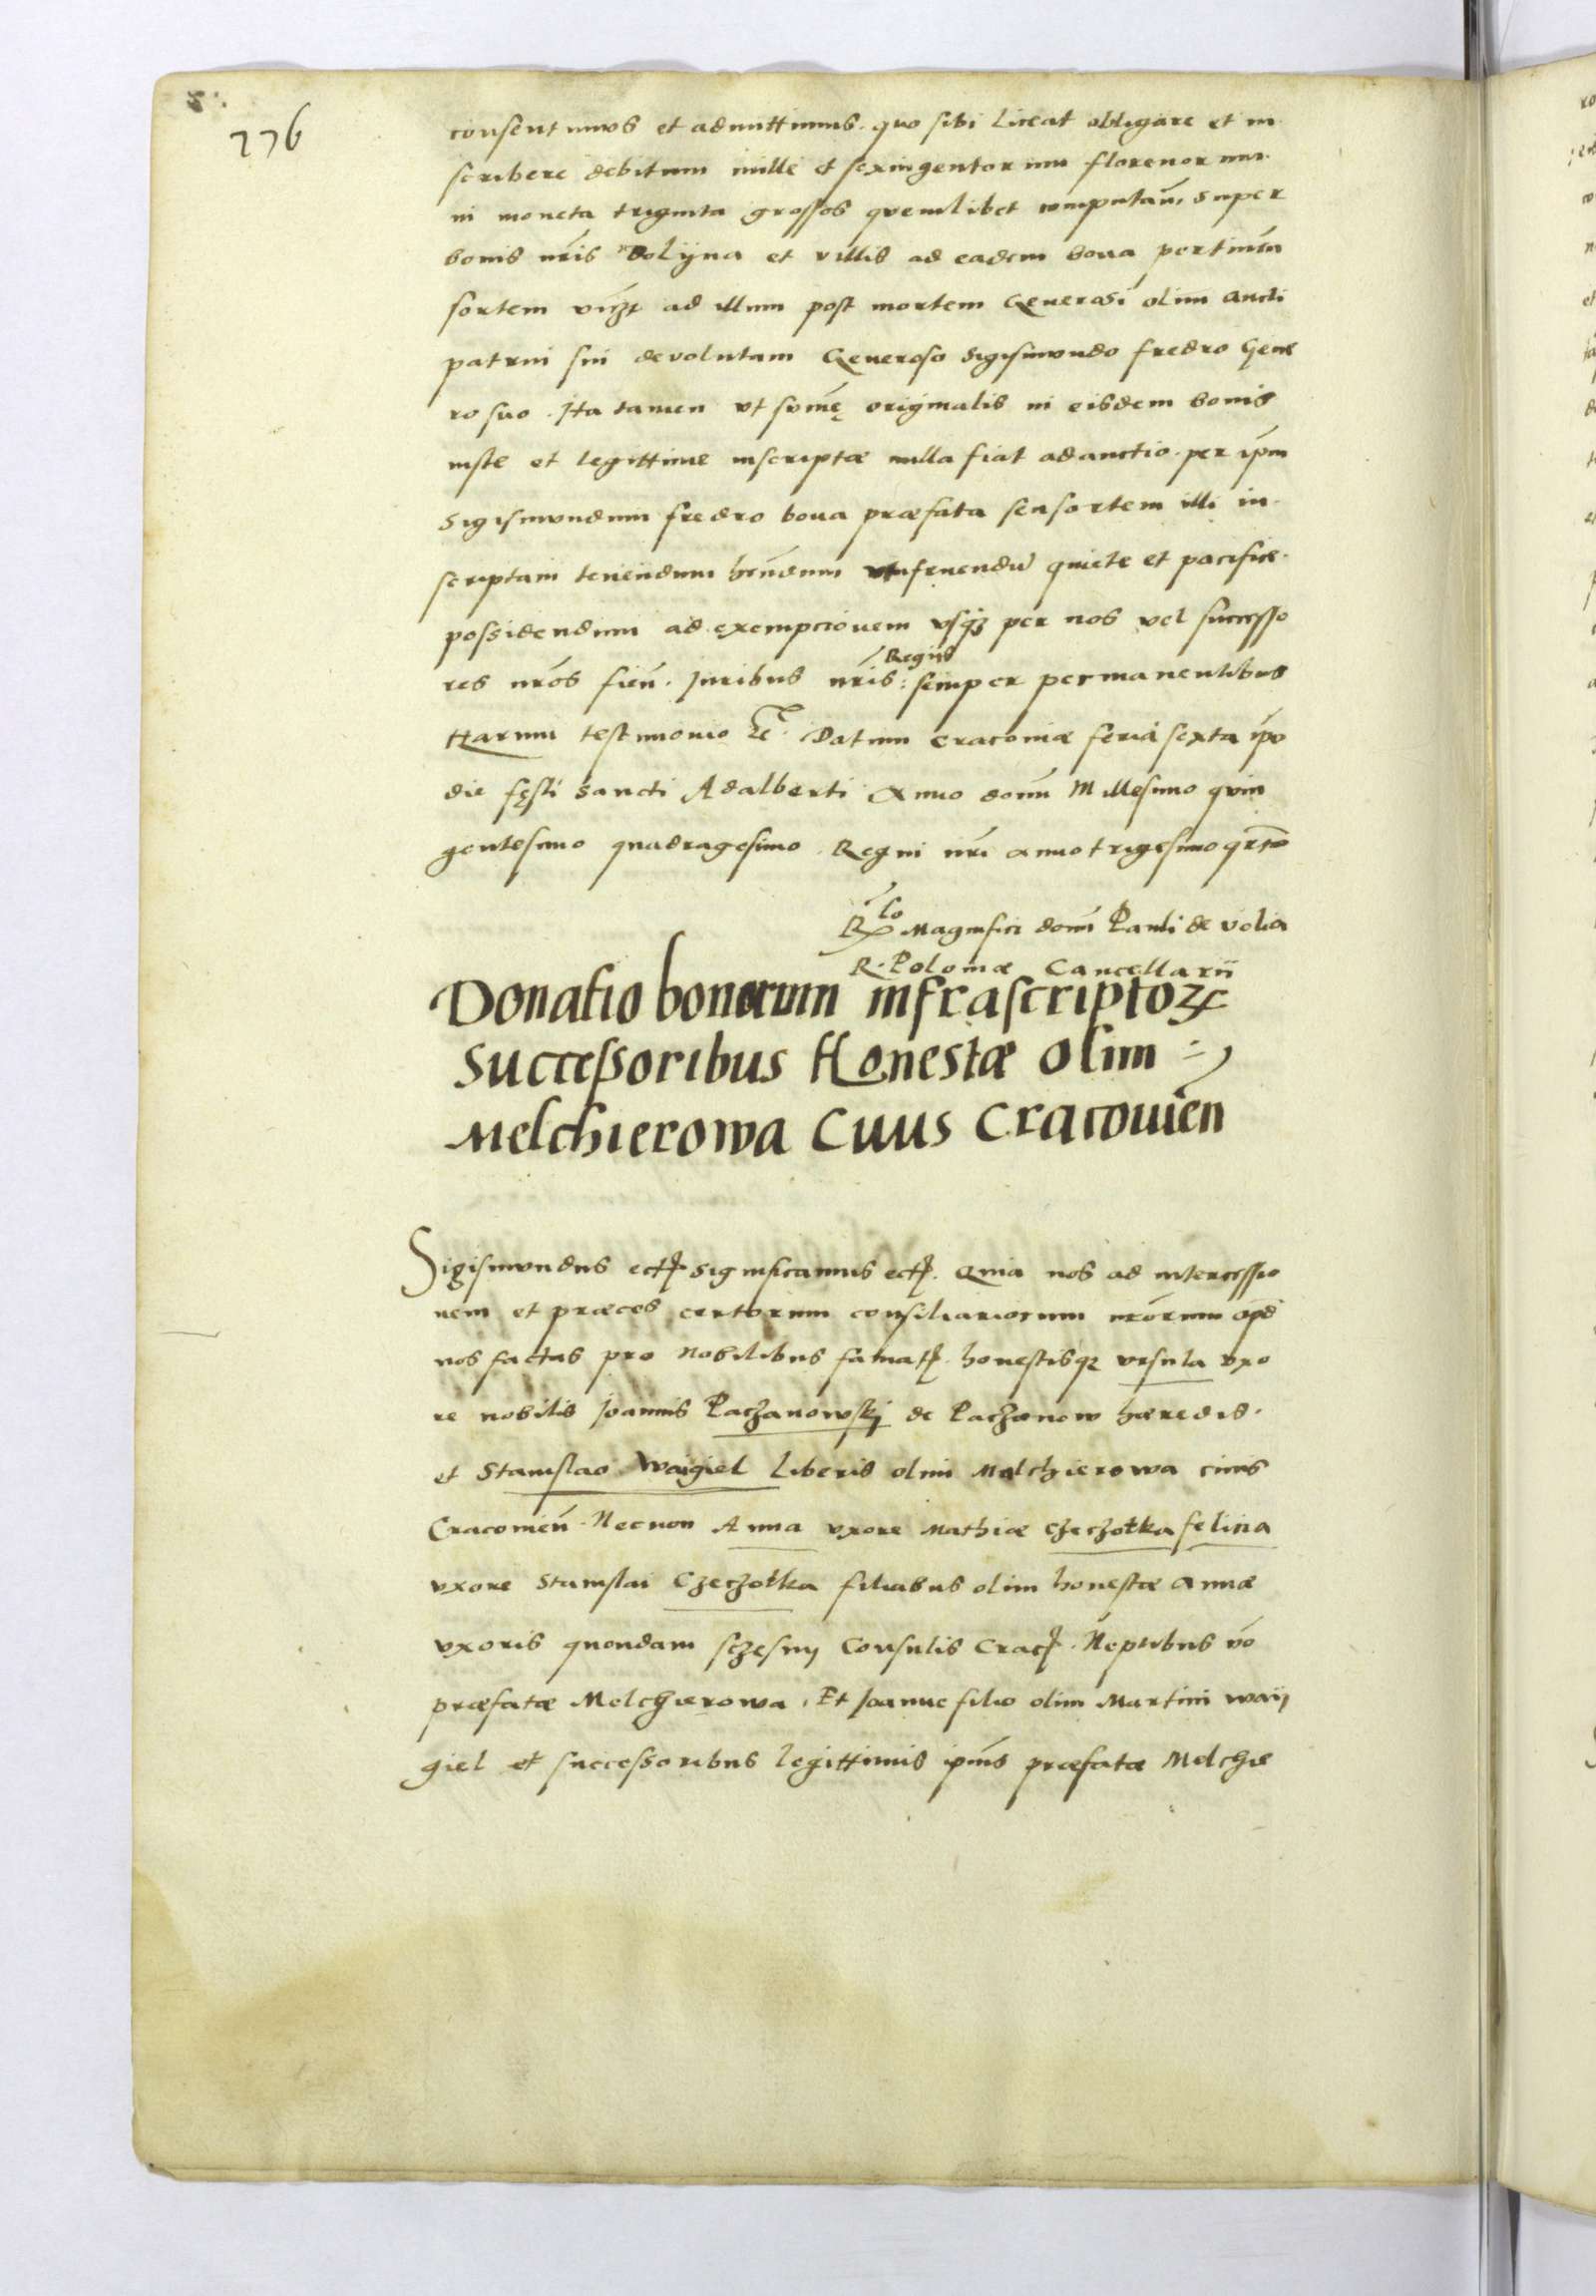 276
consentimus et admittimus. quo sibi liceat obligare et in
scribere debitum mille et sexingentorum florenorum.
in moneta triginta grossos quemlibet computan̄ super
bonis nr̄is Dolijna et villis ad eadem bona pertineñ
sortem vicz̄t ad illum post mortem Generosi olim
patrui sui devolutam Generoso Sigismundo fredro Gene
ro suo. Ita tamen vt som̄ę originalis in eisdem bonis
iuste et legittime inscriptæ nulla fiat adauctio. per ip̄m
Sigismundum fredro bona præfata seu sortem illi in
scriptam tenendum hēndum vtifruendū quiete et pacifice.
possidendum ad exempcionem vsqz per nos vel successo
res nr̄os fień. Juribus nr̄is Regiis semper permanentibus
Harum testimonio &c̄. Datum Cracoviæ feria sexta ip̄o
die fęsti Sancti Adalberti Anno domī Millesimo quin
gentesimo quadragesimo. Regni nr̄i anno trigesimo qrto
R̄lo Magnifici domī Pauli de volia
R. Poloniæ Cancellarii
Donatio bonorum infrascriptoꝝ
Successoribus Honestæ olim
Melchierowa Civis Cracovien̄
Sigismundus ectꝭ Significamus ectꝭ. Quia nos ad intercessio
nem et præces certorum consiliariorum nr̄orum apd
nos factas pro Nobilibus famatꝭ. honestisqz vrsula vxo
re nobilis Joannis Paczanowskj de Paczanow hæredis.
et Stanislao Waigiel Liberis olim Melchierowa civis
Cracovień. Necnon Anna vxore Mathiæ Czeczotka felicia
vxore Stanislai Czeczotka filiabus olim honestæ Annæ
vxoris quondam sczesny Consulis Cracꝭ. Neptibus v̄o
præfatæ Melchierowa. Et Joanne filio olim Martini waij
giel et successoribus legittimis ip̄ius præfatæ Melchie